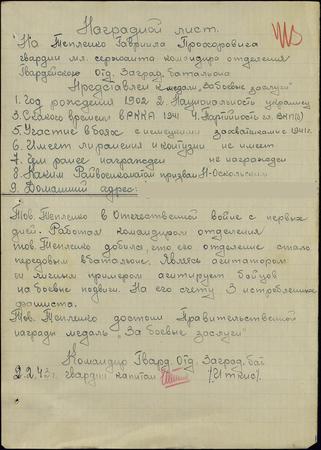 Наградной лист.
На Тепленко Гавриила Прохоровича
гвардии мл. сержанта командира отделения
Гвардейского Отд. Заград. батальона
Представлен к медал. "За боевые заслуги"
1. Год рождения 1902 2. Национальность украинец
3. С какого времени в РККА 1941 4. Партийность чл. ВКП(б)
5. Участие в боях с немецкими захватчиками с 1941 г.
6. Имеет ли ранения и контузии не имеет
7. Чем ранее награжден не награжден
8. Каким Райвоенкоматом призван Н-Оскольским
9. Домашний адрес:
Тов. Тепленко в Отечественной войне с первых
дней. Работая командиром отделения
тов. Тепленко добился, что его отделение стало
передовым в батальоне. Являясь агитатором
он личным примером агитирует бойцов
на боевые подвиги. На его счету 3 истребленных
фашиста.
Тов. Тепленко достоин Правительственной
награды медаль "За боевые заслуги"
Командир Гвард. Отд. Заград. бат
2.2.43 г. гвардии капитан /Уткис/.